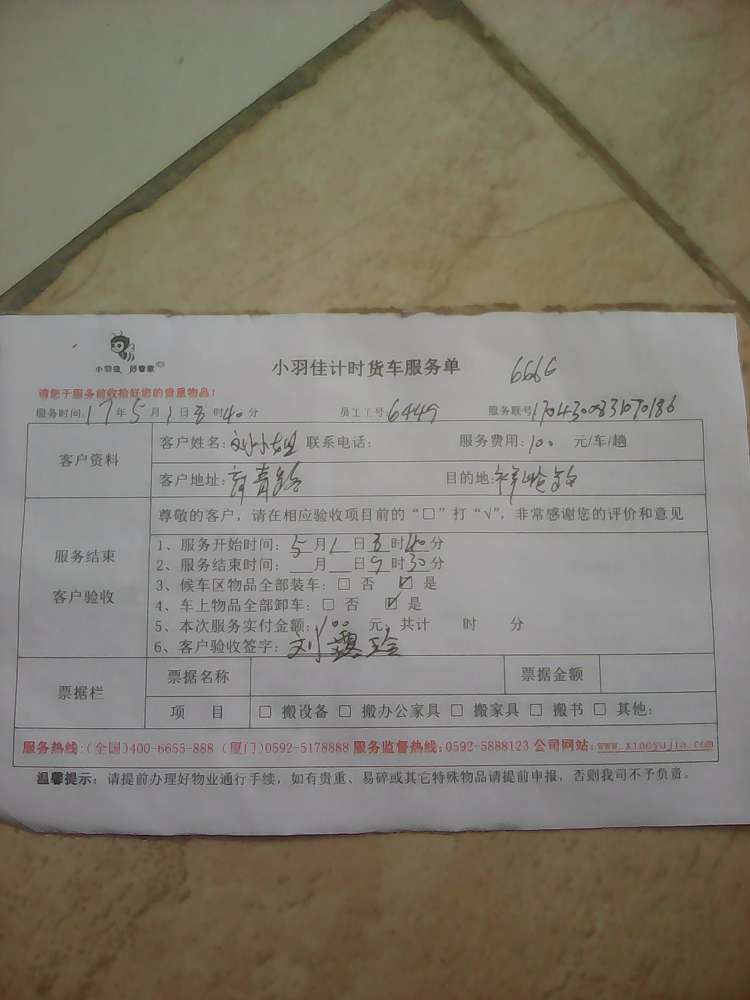 小羽佳 好管家
小羽佳计时货车服务单 6666
请您于服务前收捡好您的贵重物品!
服务时间:17年5月1日8时40分 员工工号:6449 服务联号
客户资料
客户姓名:刘小姐 联系电话: 服务费用:100 元/车/趟
客户地址: 目的地:
尊敬的客户，请在相应验收项目前的“□”打“√”，非常感谢您的评价和意见
服务结束
客户验收
1、服务开始时间:5月1日8时40分
2、服务结束时间: 月 日9时30分
3、候车区物品全部装车:□ 否 ☑ 是
4、车上物品全部卸车:□ 否 ☑ 是
5、本次服务实付金额:100 元; 共计 时 分
6、客户验收签字:
票据栏
票据名称 票据金额
项 目 □ 搬设备 □ 搬办公家具 □ 搬家具 □ 搬书 □ 其他:
服务热线:(全国)400-6655-888 (厦门)0592-5178888 服务监督热线:0592-5888123 公司网站:www.xiaoyujia.com
温馨提示: 请提前办理好物业通行手续，如有贵重、易碎或其它特殊物品请提前申报，否则我司不予负责。